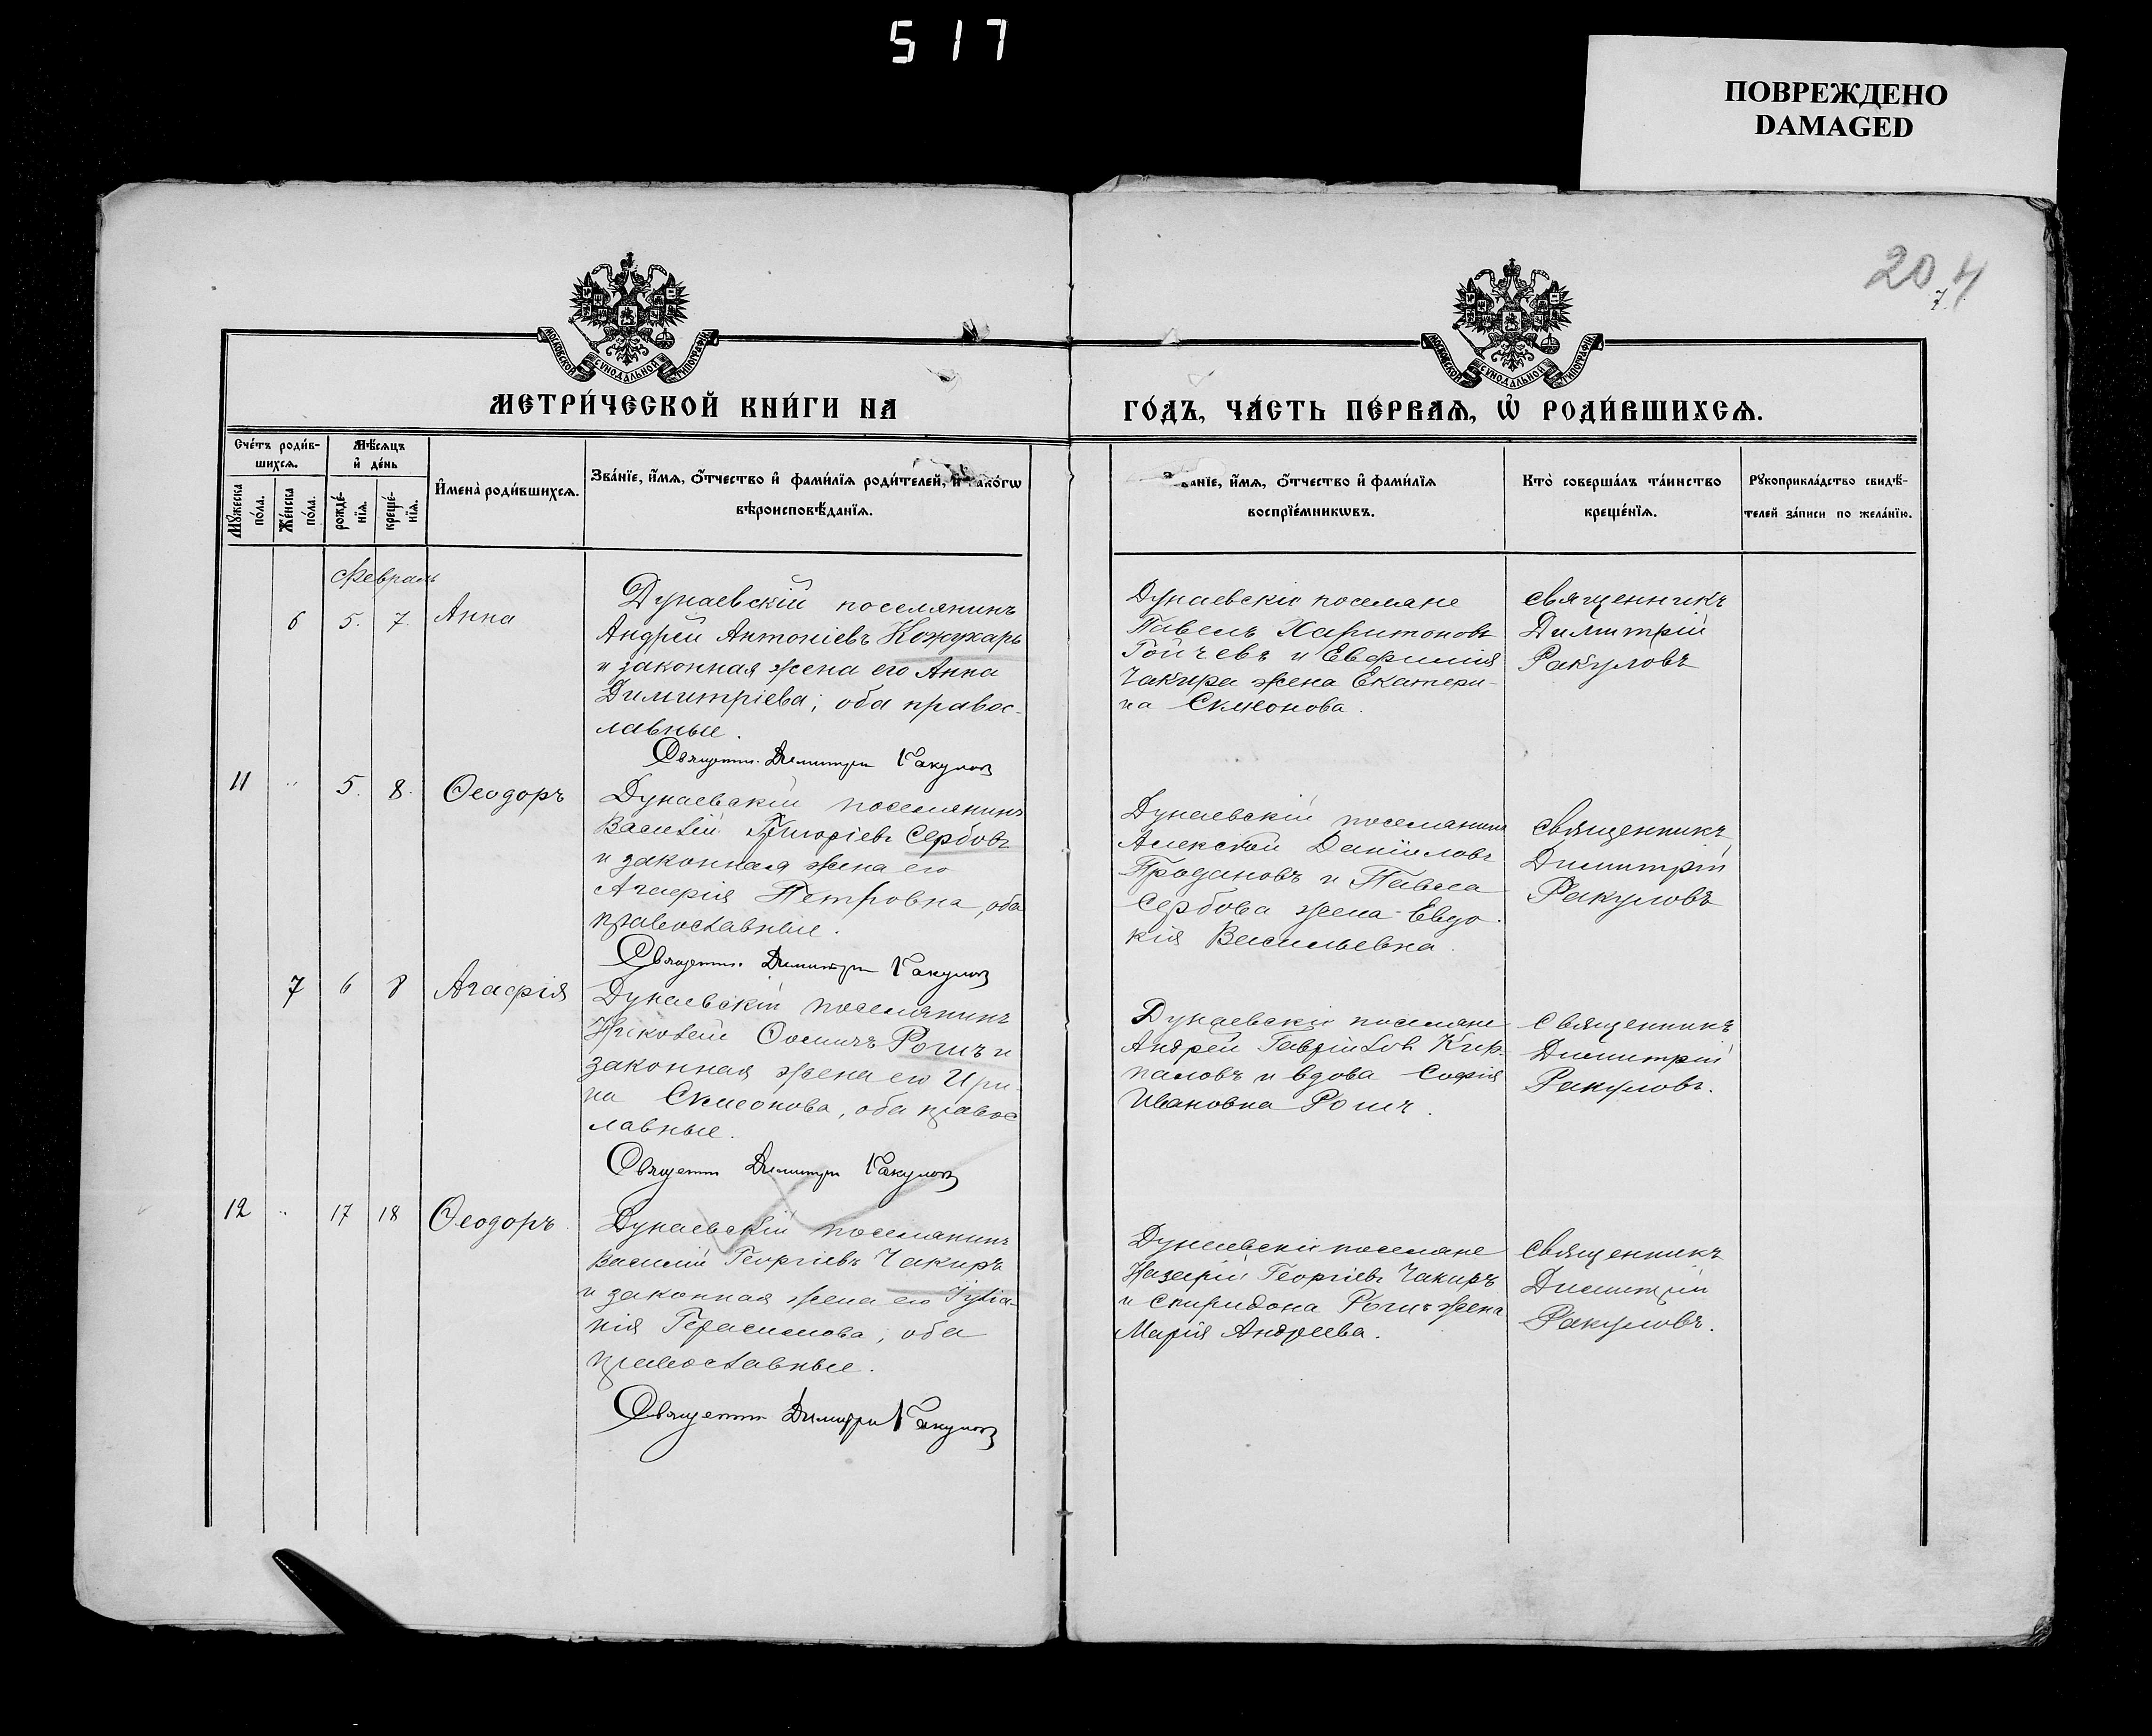 517
ПОВРЕЖДЕНО
DAMAGED
204
7
МОСКОВСКОЙ СУНОДАЛЬНОЙ ТИПОГРАФІИ
МОСКОВСКОЙ СУНОДАЛЬНОЙ ТИПОГРАФІИ
МЕТРИ́ЧЕСКОЙ КНИ́ГИ НА
ГО́ДЪ, ЧА́СТЬ ПЕ́РВАѦ, Ѽ РОДИ́ВШИХСѦ.
Сче́тъ роди́в-
шихсѧ.
Мѣ́сѧцъ
и҆ де́нь
Мꙋ́жеска
по́ла.
Же́нска
по́ла.
рожде́-
нїѧ.
креще́-
нїѧ.
И҆мена̀ роди́вшихсѧ.
Зва́нїе, и҆́мѧ, ѻ҆́тчество и҆ фами́лїѧ роди́телей, и҆ како́гѡ
вѣроисповѣ́данїѧ.
Зва́нїе, и҆́мѧ, ѻ҆́тчество и҆ фами́лїѧ
воспрїе́мникѡвъ.
Кто̀ соверша́лъ та́инство
креще́нїѧ.
Рꙋкоприкла́дство свидѣ́-
телей за́писи по жела́нїю.
Февраль
6 5. 7. Анна
Дунаевскій поселянинъ
Андрей Антоніевъ Кожухарь
и законная жена его Анна
Димитріева, оба правос-
лавные.
Священн. Димитри Ракулов
Дунаевскіи поселяне
Павелъ Харитоновъ
Гойчевъ и Евфимія
Чакира жена Екатери-
на Симеонова.
священникъ
Димитрій
Ракуловъ
11 " 5. 8. Ѳеодоръ
Дунаевскій поселянинъ
Василій Григоріевъ Сербовъ
и законная жена его
Агафія Петровна, оба
православные.
Священн. Димитри Ракулов
Дунаевскій поселянинъ
Алексѣй Даниловъ
Продановъ и Павла
Сербова жена Евдо-
кія Васильевна.
священникъ
Димитрій
Ракуловъ
7 6 8 Агафія
Дунаевскій поселянинъ
Ѳомичъ Рошъ и
законная жена его Ири-
на Симеонова, оба правос
лавные.
Священн Димитри Ракулов
Дунаевскіи поселяне
Андрей Гавріиловъ Кир-
паловъ и вдова Софія
Ивановна Рошъ.
Священникъ
Димитрій
Ракуловъ.
12 " 17 18 Ѳеодоръ
Дунаевскій поселянинъ
Василій Георгіевъ Чакиръ
и законная жена его Іуліа-
нія Герасимова, оба
православные.
Священн Димитри Ракулов
Дунаевскіи поселяне
Назарій Георгіевъ Чакиръ
и Спиридона Рошъ жена
Марія Андреева.
Священникъ
Димитрій
Ракуловъ.